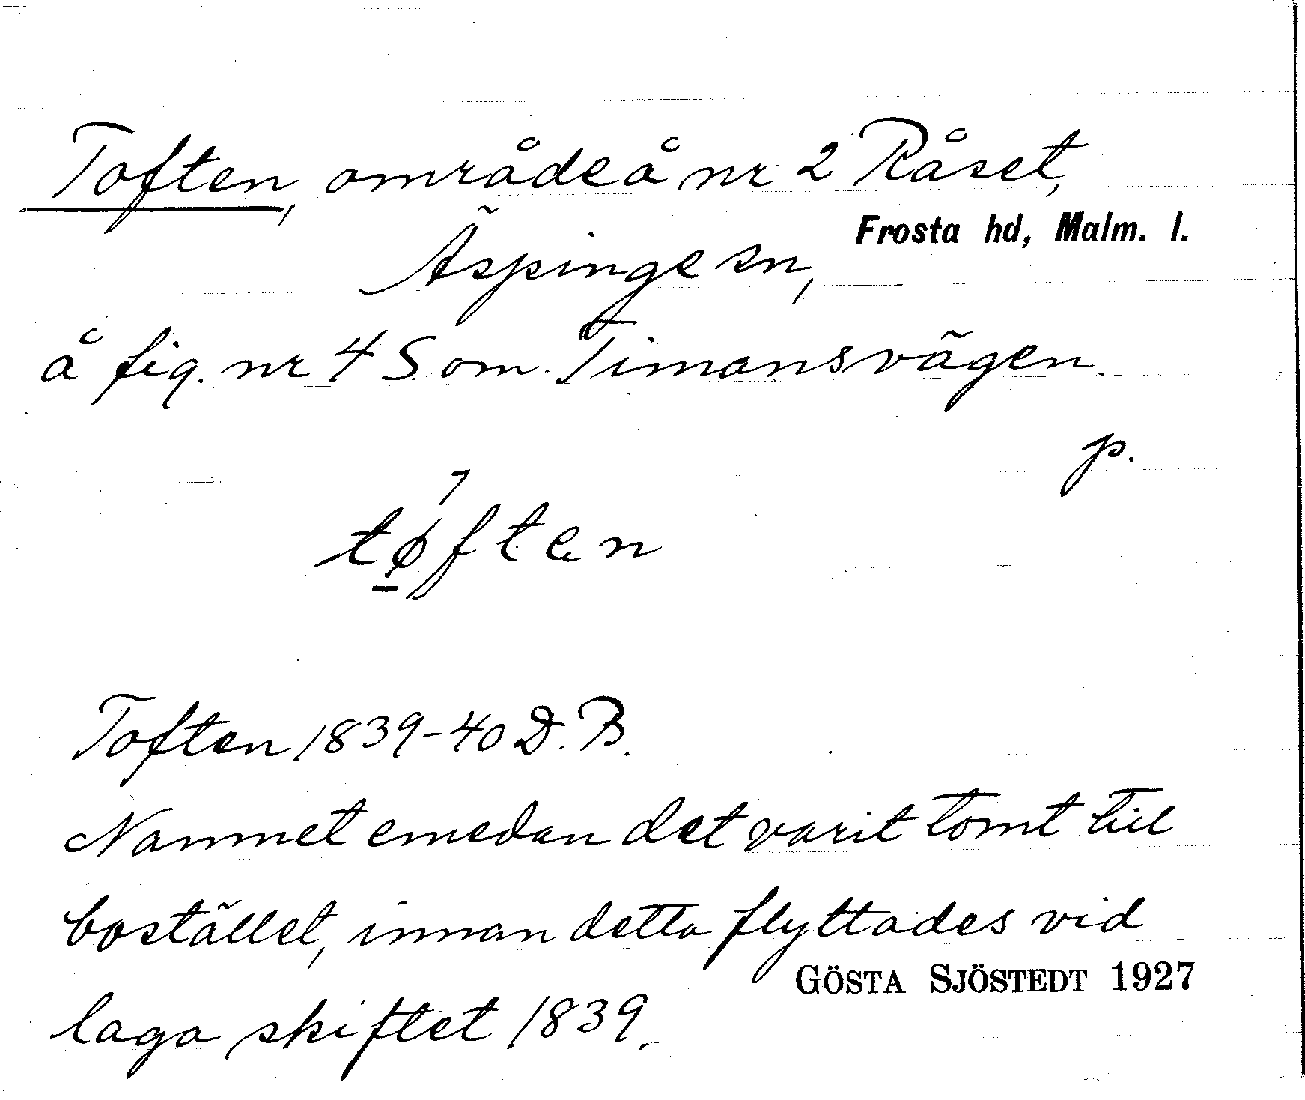 Toften, område å nr 2 Råset,
Frosta hd, Malm. l.
Äspinge sn,
å fig. nr 4 S om Timansvägen.
p.
tǿ̱ften
Toften 1839-40 D.B.
Namnet emedan det varit tomt till
bostället, innan detta flyttades vid
GÖSTA SJÖSTEDT 1927
laga skiftet 1839.